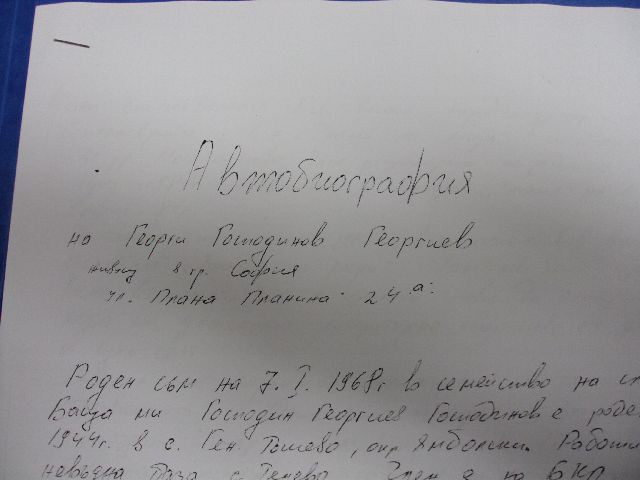 Автобиография
на Георги Господинов Георгиев
живущ в гр. София
ул. Плана Планина 24 а.
Роден съм на 7. I. 1968г в семейство на
Баща ми Господин Георгиев Господинов е
1944г. в с. Ген. Тошево, окр. Ямболски.
БКП